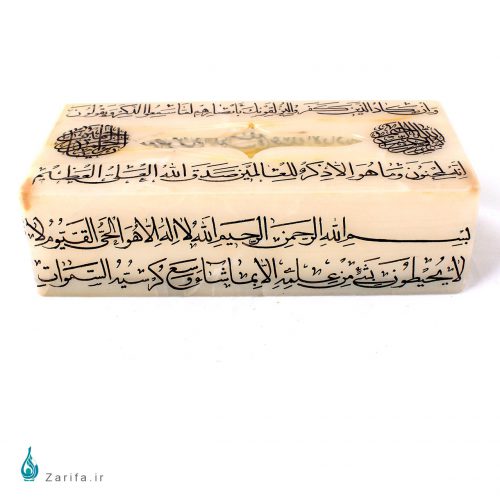 وان یکاد الذین کفروا لیزلقونک بابصارهم لما سمعوا الذکر ویقولون
انه لمجنون وما هو الا ذکر للعالمین صدق الله العلی العظیم
بسم الله الرحمن الرحیم الله لا اله الا هو الحی القیوم لا
لا یحیطون بشیء من علمه الا بما شاء وسع کرسیه السموات
Zarifa.ir